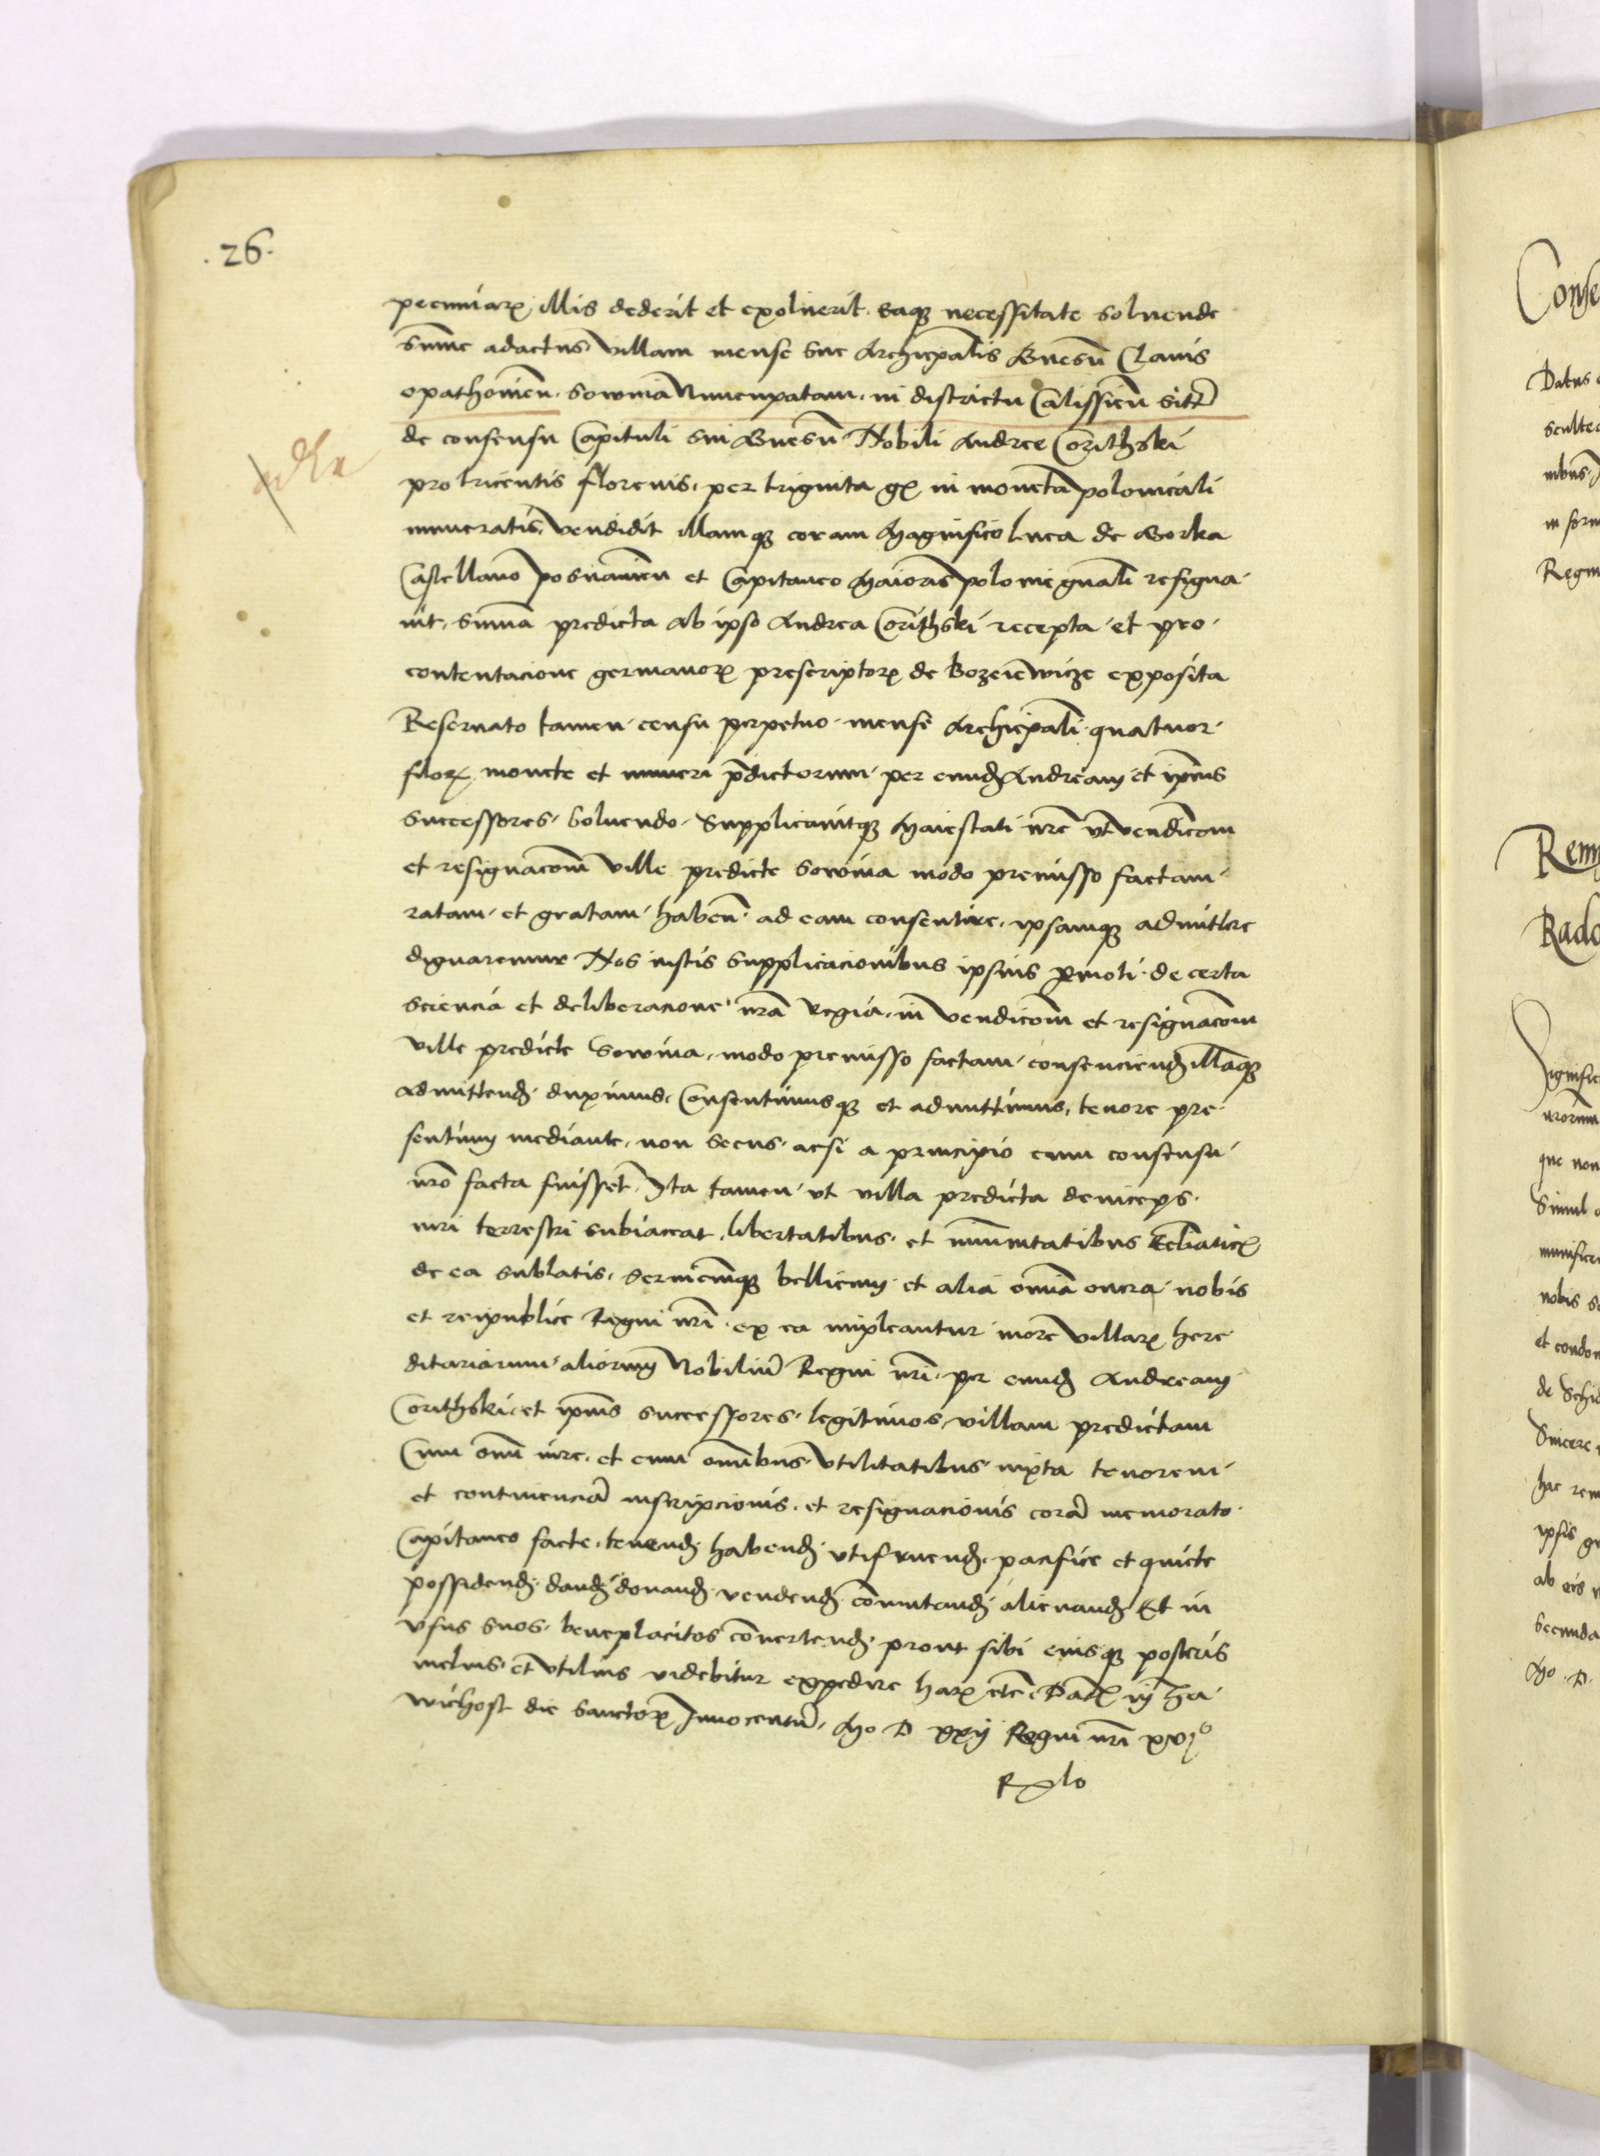 .26.
pecuniarꝝ illis dederit et exolverit. eaqꝫ necessitate solvende
sum̄e adactus villam mense sue Archiepālis Gnesn̄ Clavis
opathovien̄. Sowina Nuncupatam. in districtu Calissien̄ sitā
de consensu Capituli sui Gnesn̄ Nobili Andree Corithski
pro tricentis florenis. per triginta gꝝ in moneta polonicali
numeratis. vendidit illamqꝫ coram Magnifico Luca de Gorka
Castellano posnanien̄ et Capitaneo Maioris polonie gnali resigna-
vit. sum̄a predicta ab ipso Andrea Corithski recepta. et pro.
contentacione germanorꝝ prescriptorꝝ de Bozeiewicze exposita
Reservato tamen. censu perpetuo. mense Archiepāli quatuor.
florꝝ monete et numeri p̄dictorum. per eundꝫ Andream et ipīus
successores. solvendo. Supplicavitqꝫ Maiestati nr̄e vt vendicōem
et resignacōem ville predicte Sowina modo premisso factam.
ratam. et gratam. haben̄. ad eam consentire. ipsamqꝫ admittere
dignaremur Nos iustis supplicacionibus ipsius p̄moti. de certa
sciencia et deliberacione nr̄a Regia. in vendicōem et resignacōem
ville predicte Sowina. modo premisso factam. consenciendꝫ illāqꝫ
admittendꝫ. duximus. Consentimusqꝫ et admittimus. tenore pre-
sentium mediante. non secus. acsi a principio cum consensu
nr̄o facta fuisset. Ita tamen. vt villa predicta deinceps.
iuri terrestri subiaceat. libertatibus. et im̄unitatibus Ecl̄iaticꝝ
de ea sublatis. Serviciumqꝫ bellicum. et alia om̄ia onera. nobis
et reipublice Regni nr̄i. ex ea impleantur more villarꝝ here
ditariarum. aliorum Nobiliū Regni nr̄i. per eundꝫ Andream
Corithski. et ipīus successores. legitimos. villam predictam
Cum om̄i iure. et cum om̄ibus. vtilitatibus. iuxta tenorem
et continenciā inscripcionis. et resignacionis corā memorato.
Capitaneo facte. tenendꝫ. habendꝫ. vtifruendꝫ. pacifice et quiete
possidendꝫ. dandꝫ donandꝫ. vendendꝫ com̄utandꝫ alienandꝫ Et in
vsus suos. beneplacitos convertendꝫ. prout sibi eiusqꝫ posteris
melius. et vtilius videbitur expedire harꝝ etc̄. Datꝝ in Za
wichost die Sanctorꝝ Innocentū. Mo D xxij Regni nr̄i xvjᵒ